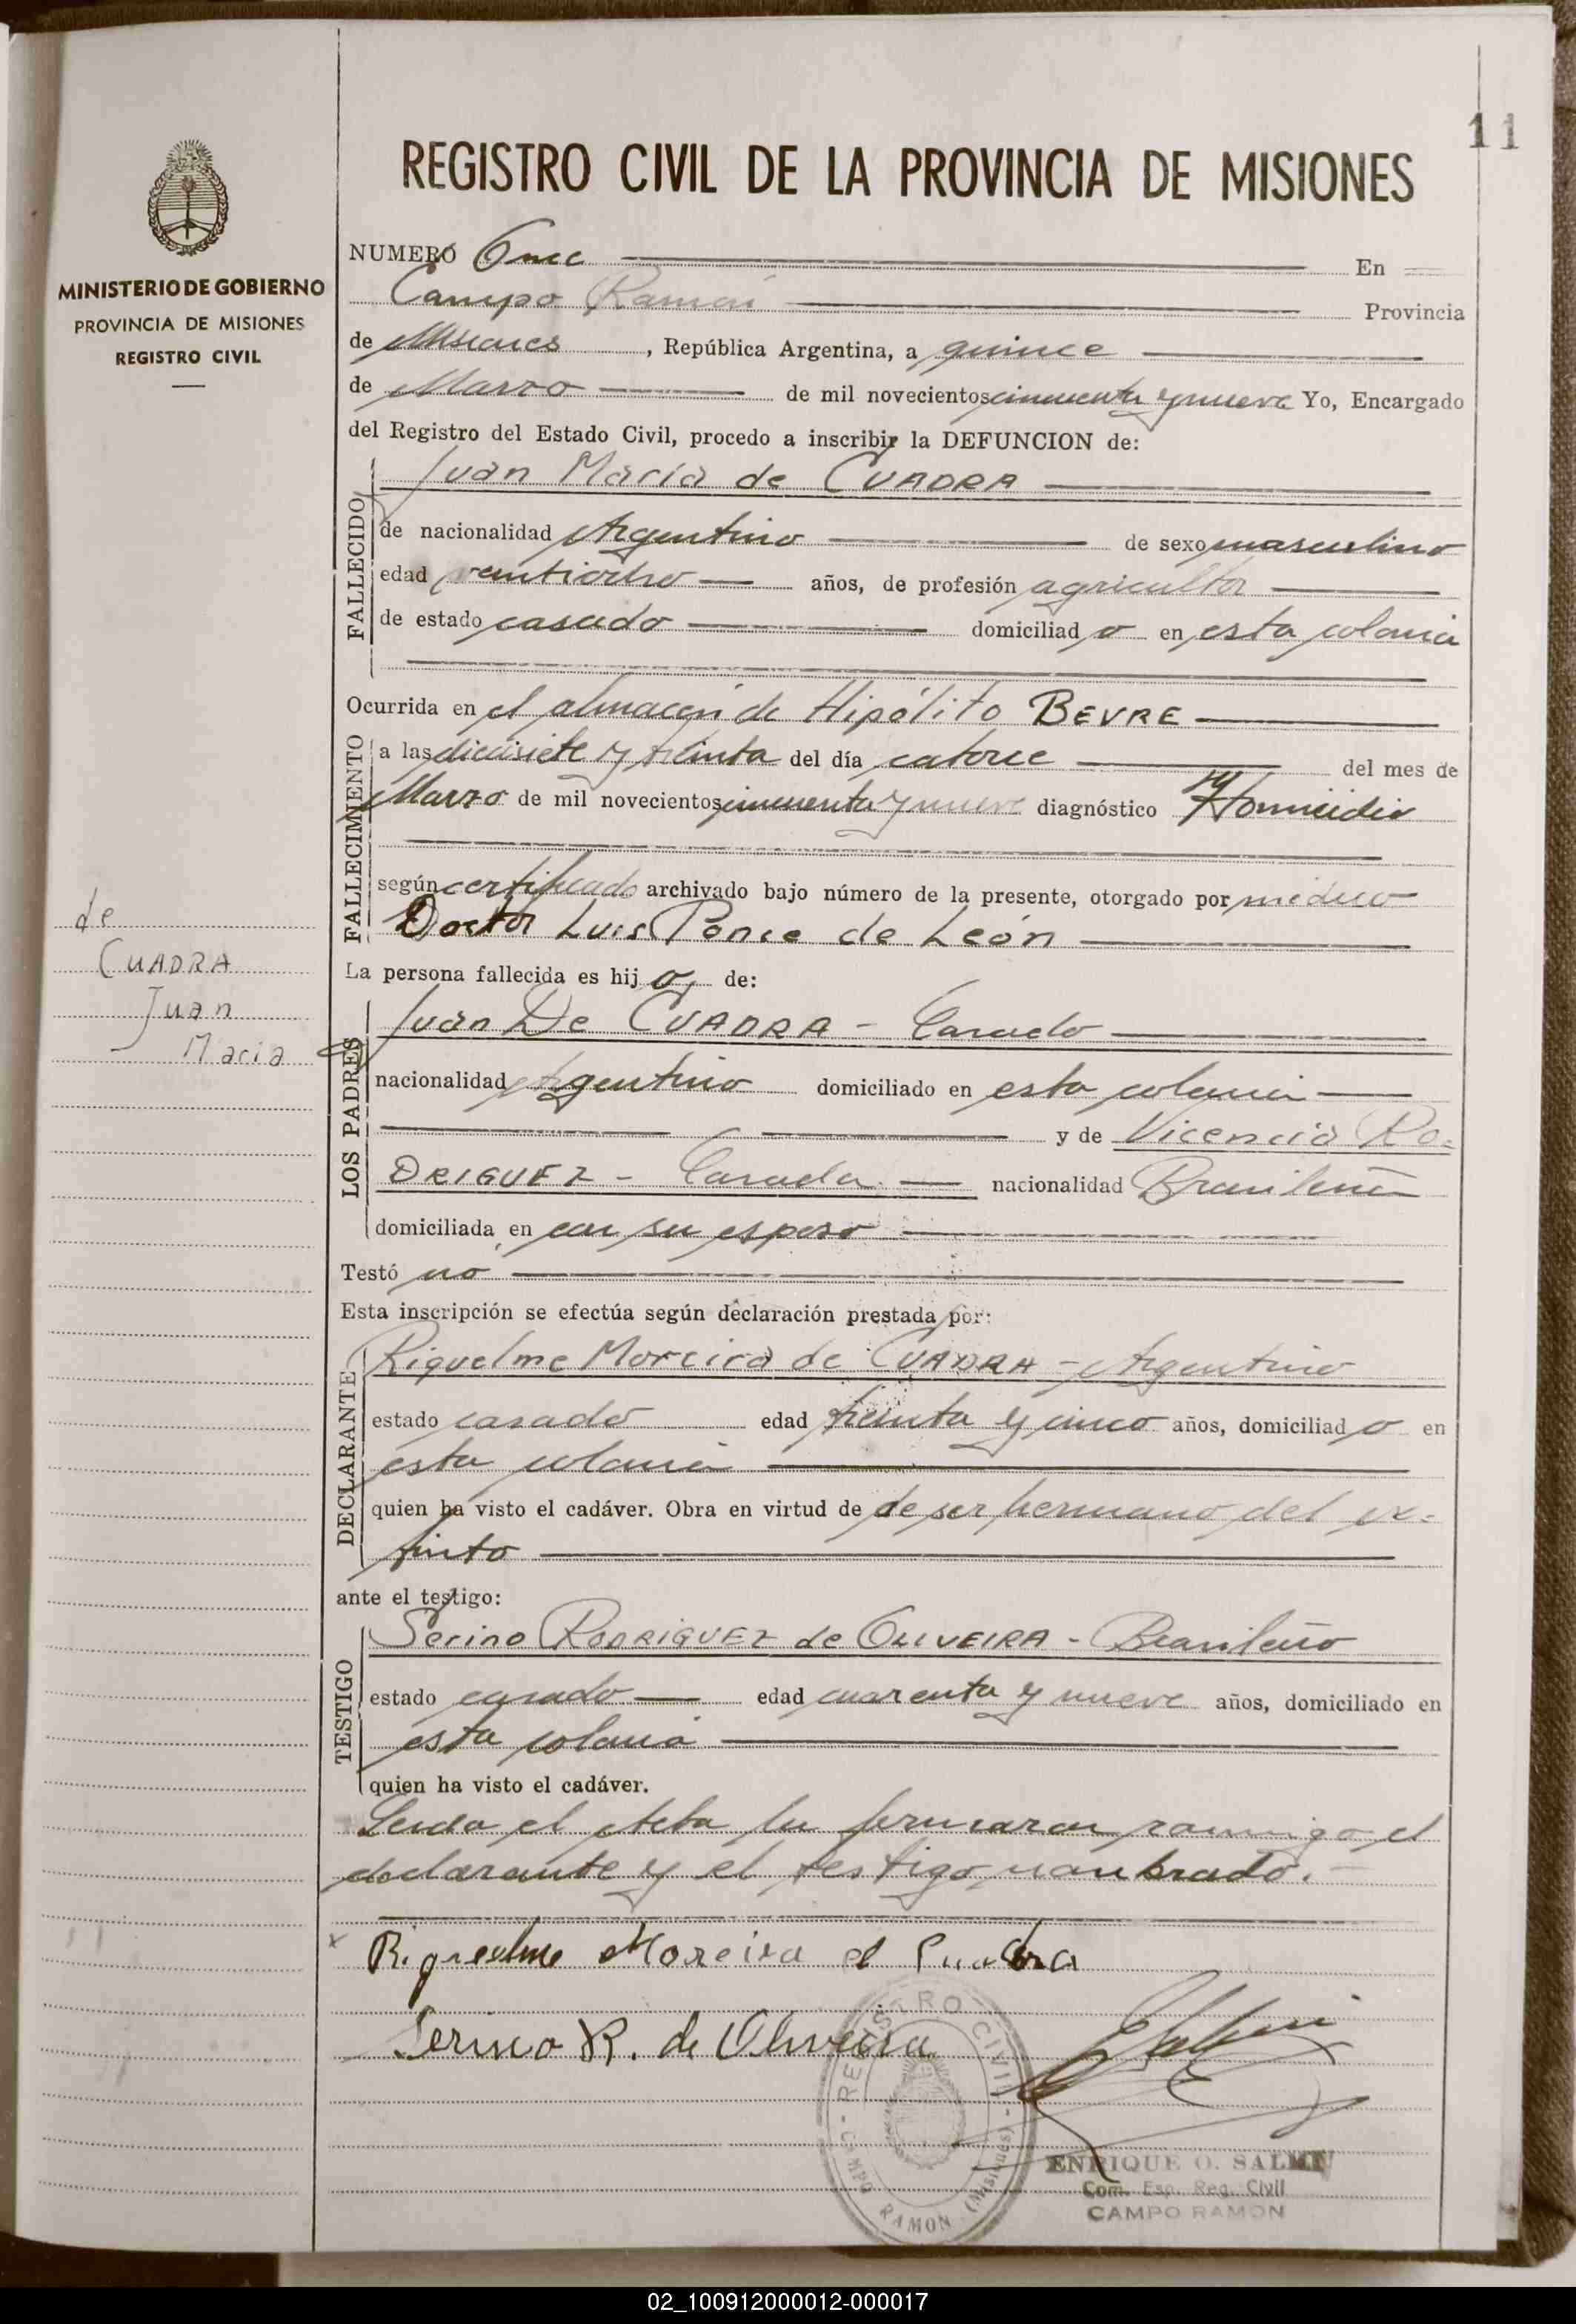 11
REGISTRO CIVIL DE LA PROVINCIA DE MISIONES
MINISTERIO DE GOBIERNO
PROVINCIA DE MISIONES
REGISTRO CIVIL
NUMERO Once En
Campo Ramón Provincia
de Misiones, República Argentina, a quince
de Marzo de mil novecientos cincuenta y nueve Yo, Encargado
del Registro del Estado Civil, procedo a inscribir la DEFUNCION de:
FALLECIDO
Juan Maria de CUADRA
de nacionalidad Argentino de sexo masculino
edad veintiocho años, de profesión agricultor
de estado casado domiciliad o en esta colonia
Ocurrida en el almacén de Hipólito BEVRE
FALLECIMIENTO
a las diecisiete y treinta del día catorce del mes de
Marzo de mil novecientos cincuenta y nueve diagnóstico Homicidio
según certificado archivado bajo número de la presente, otorgado por médico
Doctor Luis Ponce de León
La persona fallecida es hij o de:
de
CUADRA
Juan
Maria
LOS PADRES
Juan De CUADRA - Casado
nacionalidad Argentino domiciliado en esta colonia
y de Vicencia RO=
DRIGUEZ - Casada nacionalidad Brasileña
domiciliada en con su esposo
Testó no
Esta inscripción se efectúa según declaración prestada por:
DECLARANTE
Riquelme Moreira de CUADRA - Argentino
estado casado edad treinta y cinco años, domiciliad o en
esta colonia
quien ha visto el cadáver. Obra en virtud de de ser hermano del ex=
tinto
ante el testigo:
TESTIGO
Serino RODRIGUEZ de OLIVEIRA - Brasileño
estado casado edad cuarenta y nueve años, domiciliado en
esta colonia
quien ha visto el cadáver.
Leida el Acta la firmaron conmigo el
declarante y el testigo nombrado.-
x Riquelme Moreira d Cuadra
Serino R. de Oliveira
REGISTRO CIVIL
CAMPO RAMON (Misiones)
ENRIQUE O. SALMIN
Com. Esp. Reg. Civil
CAMPO RAMON
02_100912000012-000017